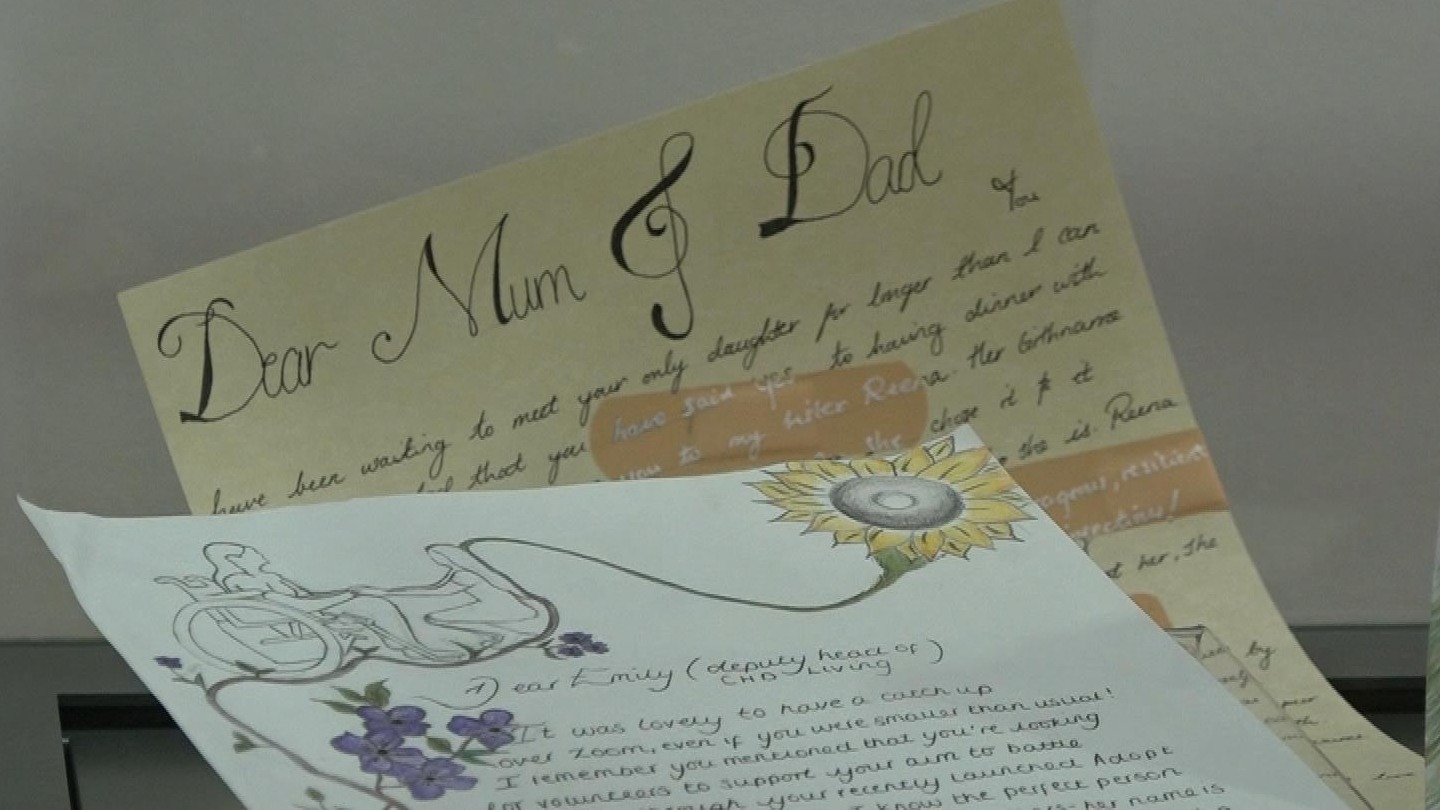 Dear Mum & Dad You
have been waiting to meet your only daughter for longer than I can
that you have said yes to having dinner with
you to my sister Reena. Her birthname
she chose it & it
she is. Reena
resilient
her, she
by
Dear Emily (deputy head of
CHD LIVING)
It was lovely to have a catch up
over Zoom, even if you were smaller than usual!
I remember you mentioned that you're looking
for volunteers to support your aim to battle
through your recently launched Adopt
I know the perfect person
her name is